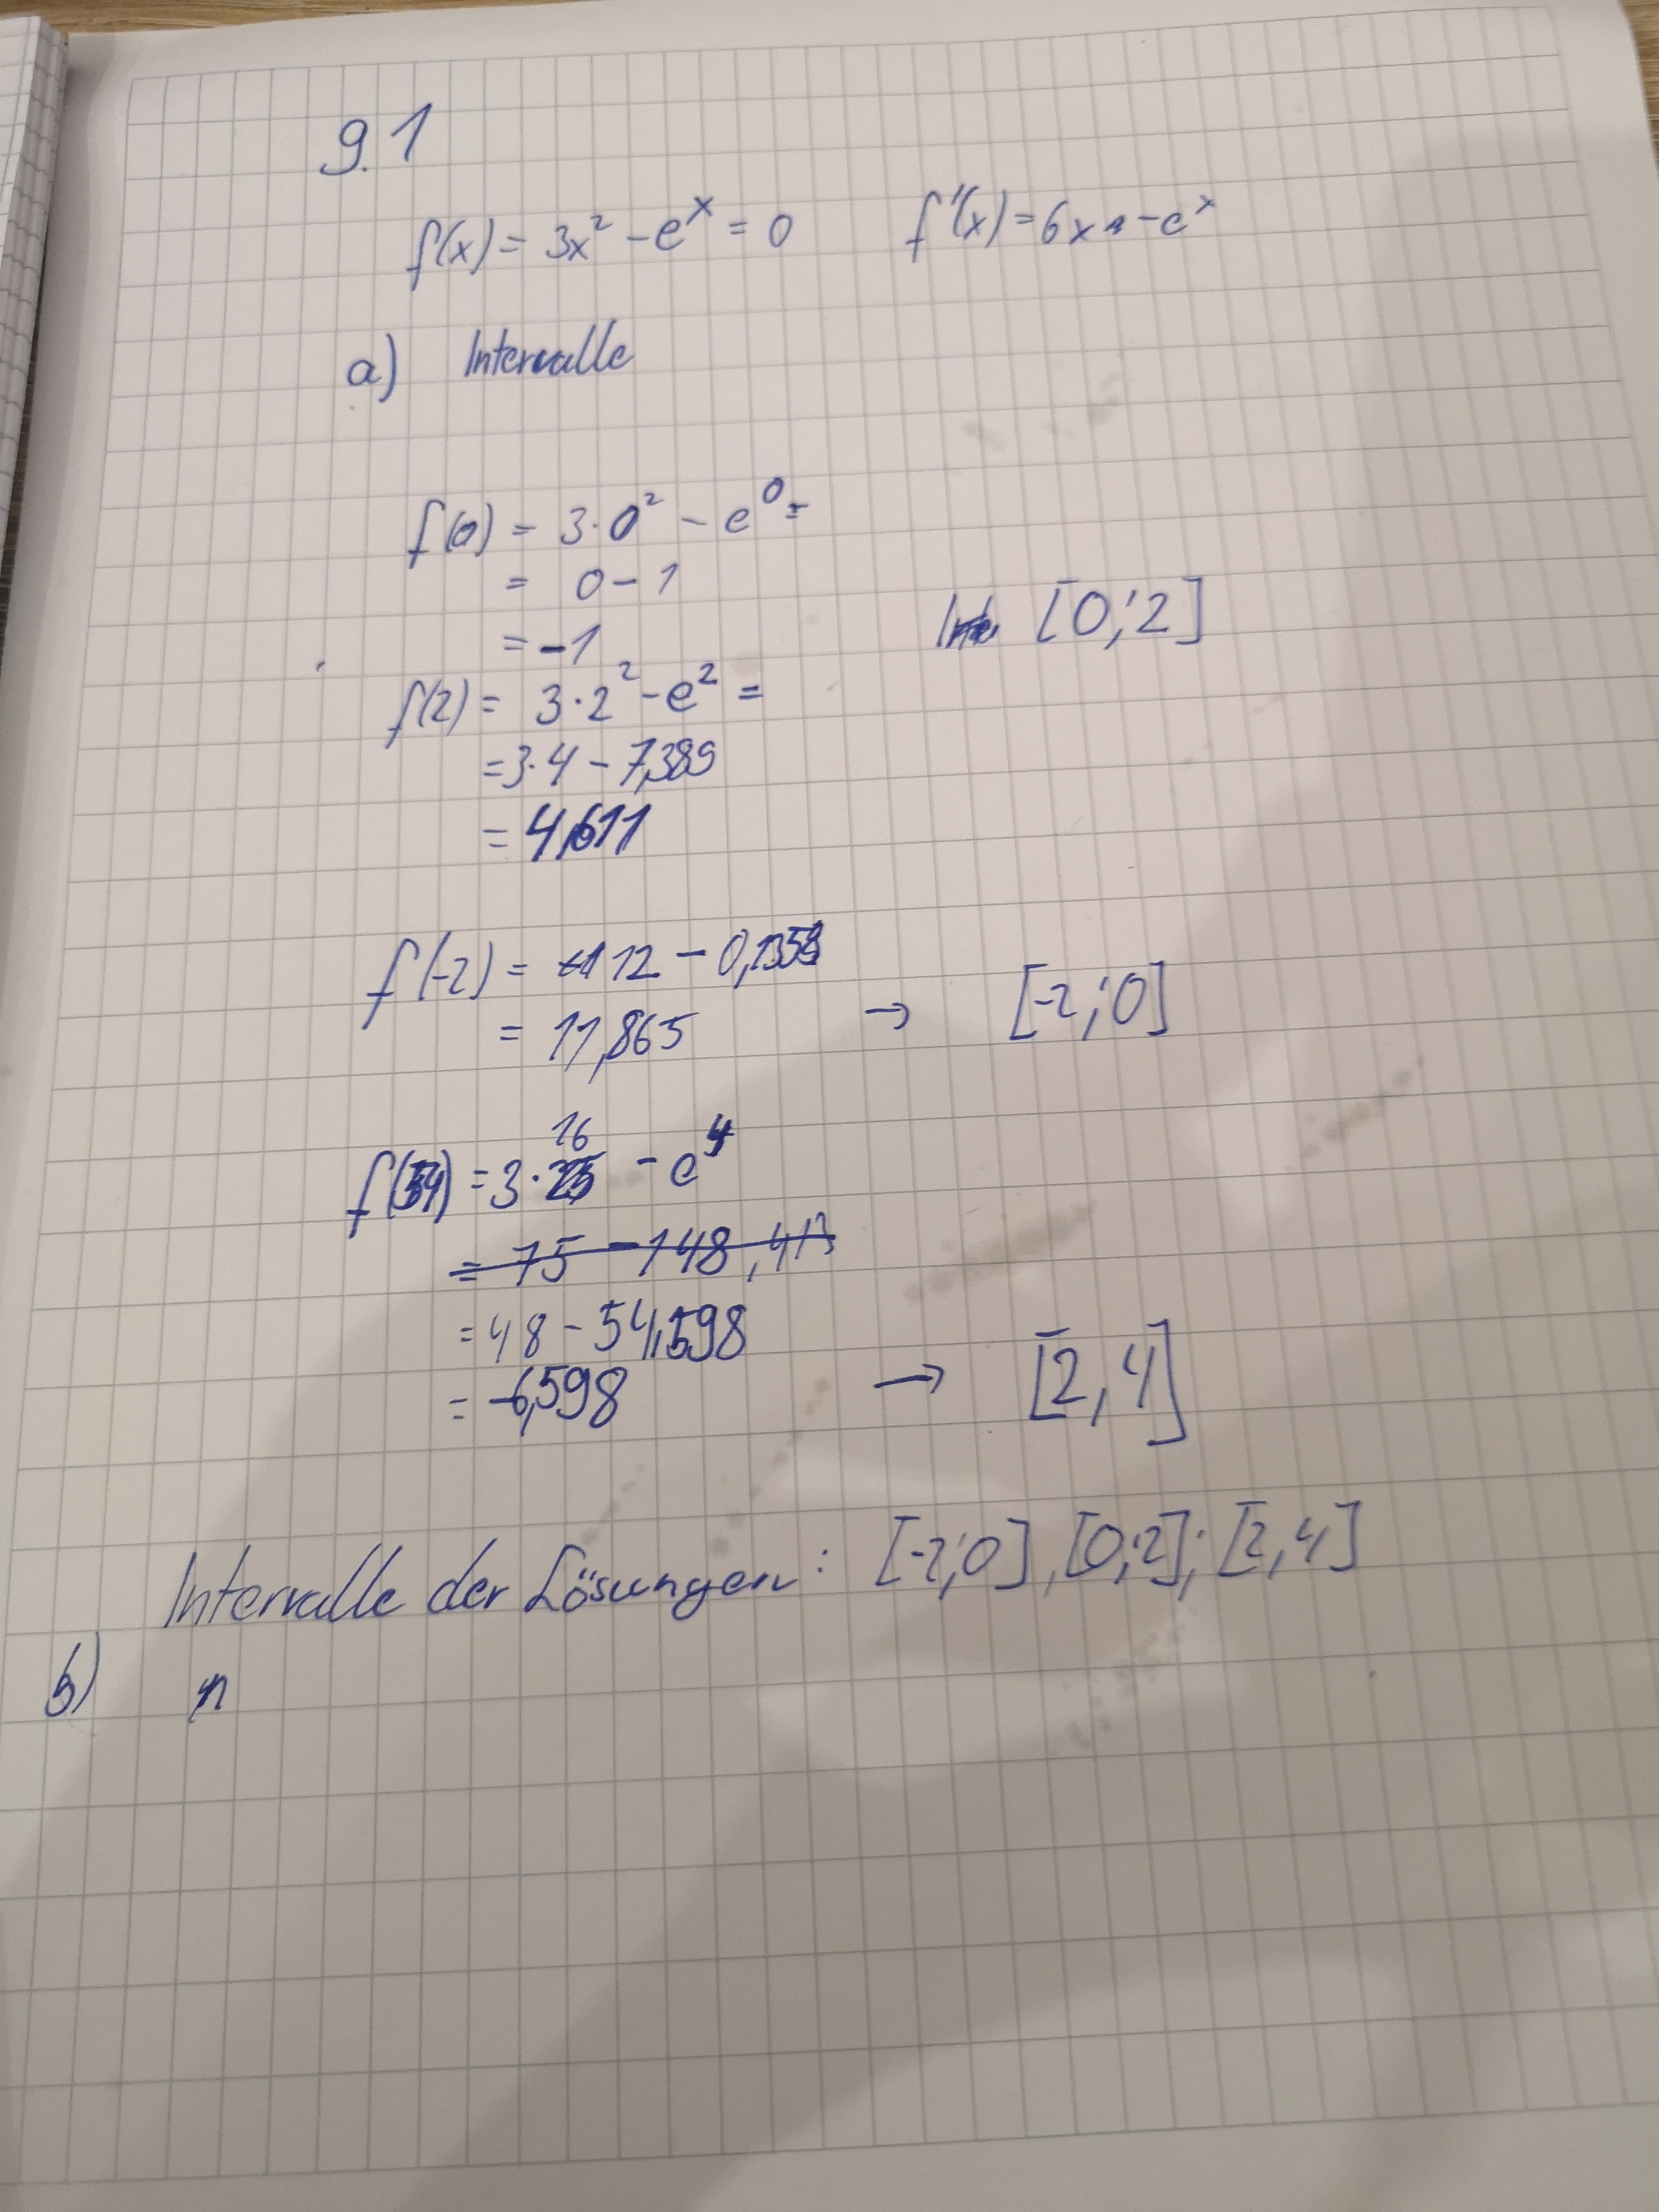 9.1
f(x) = 3x² - e^x = 0 f'(x) = 6x - e^x
a) Intervalle
f(0) = 3·0² - e^0 =
= 0 - 1
= -1
[0;2]
f(2) = 3·2² - e² =
= 3·4 - 7,389
= 4,611
f(-2) = 12 - 0,1353
= 11,865 → [-2;0]
f(4) = 3·16 - e^4
= 75 - 148,413
= 48 - 54,598
= -6,598 → [2,4]
Intervalle der Lösungen: [-2;0], [0;2]; [2,4]
b)